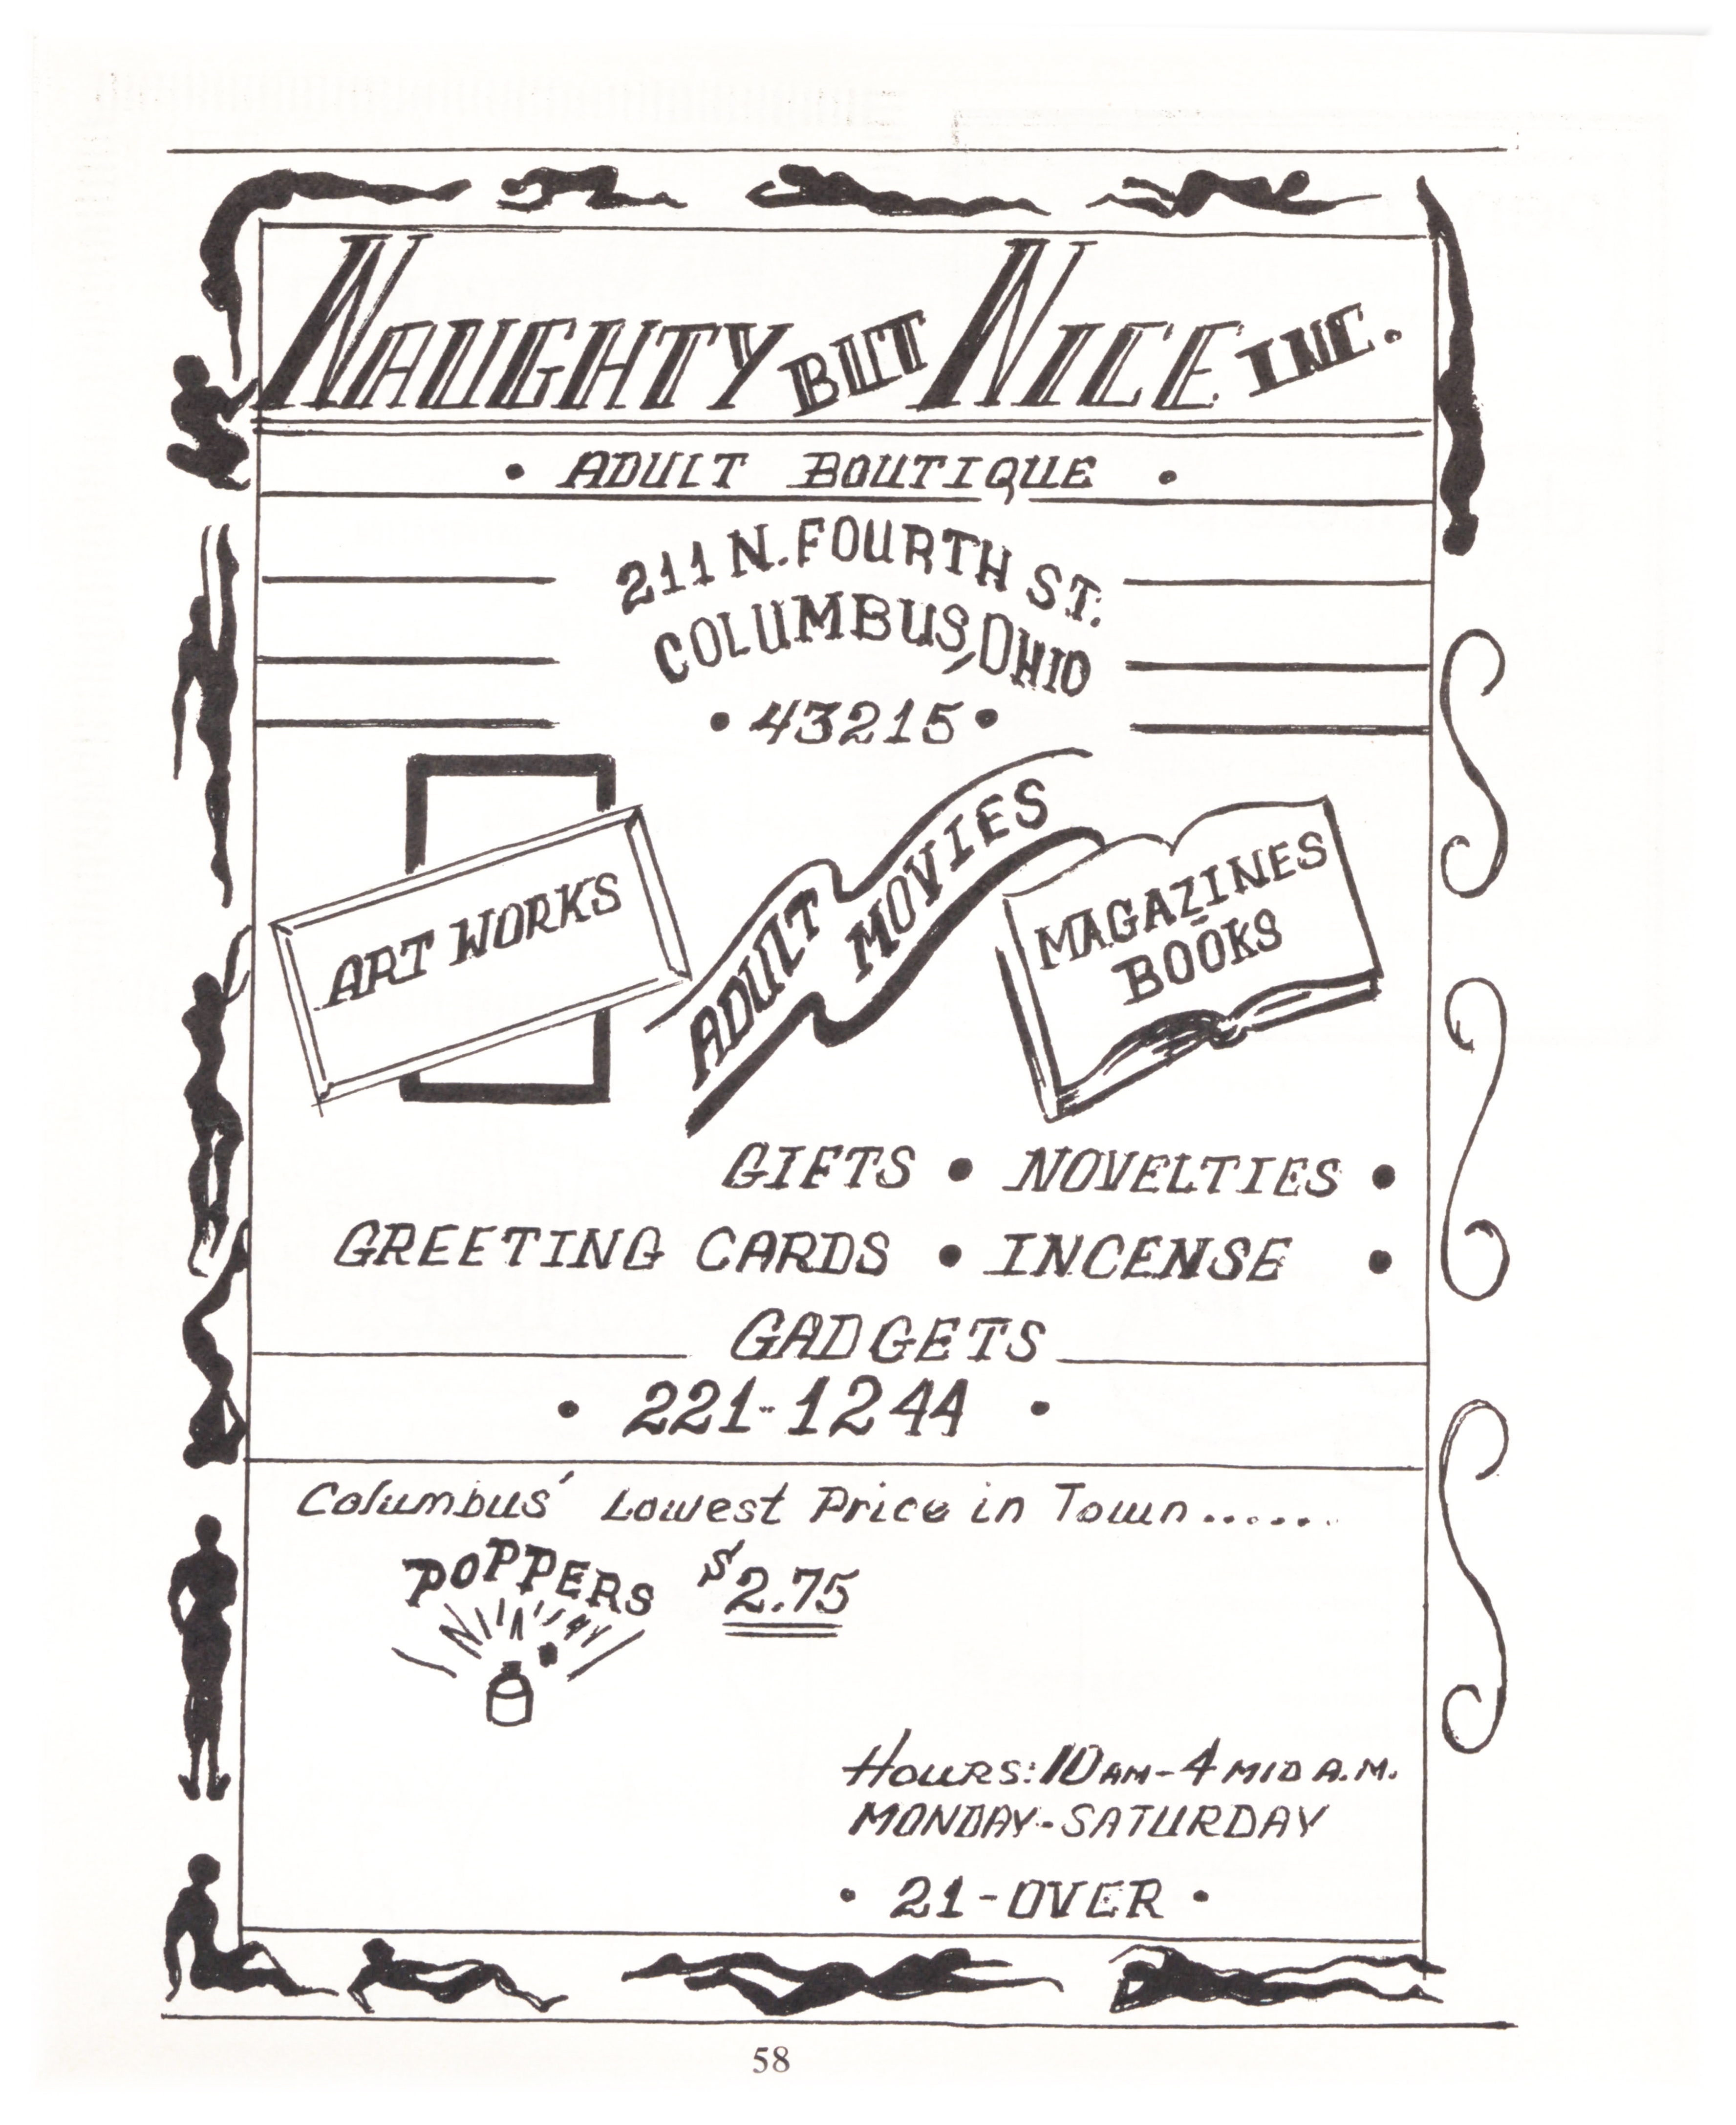 NAUGHTY BUT NICE INC.
• ADULT BOUTIQUE •
211 N. FOURTH ST.
COLUMBUS, OHIO
• 43215 •
ART WORKS
ADULT MOVIES
MAGAZINES
BOOKS
GIFTS • NOVELTIES •
GREETING CARDS • INCENSE •
GADGETS
• 221-1244 •
Columbus' Lowest Price in Town......
POPPERS $2.75
HOURS: 10 AM - 4 MID A.M.
MONDAY - SATURDAY
• 21 - OVER •
58